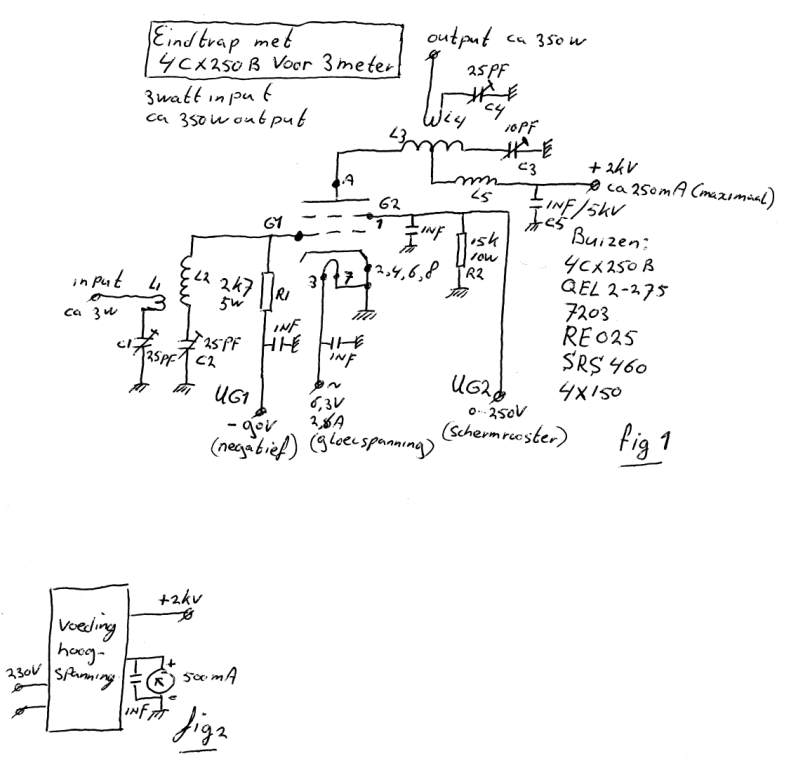 Eindtrap met
4CX250B Voor 3meter
3watt input
ca 350w output
output ca 350w
25PF
C4
L4
L3
10PF
C3
A
L5
+2kV
ca 250mA (maximaal)
1NF/5kV
C5
G2
1
G1
1NF
15k
10w
R2
2,4,6,8
3
7
input
ca 3w
L1
L2
2k7
5w
R1
C1
25PF
25PF
C2
1NF
1NF
UG1
-90V
(negatief)
~
6,3V
2,6A
(gloeispanning)
UG2
0-250V
(schermrooster)
Buizen:
4CX250B
QEL 2-275
7203
RE025
SRS 460
4X150
fig 1
Voeding
hoog-
spanning
230V
+2kV
+
500mA
-
1NF
fig2